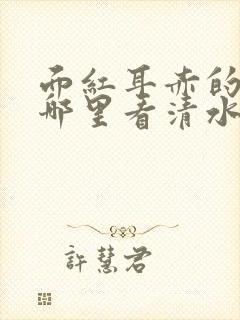 面紅耳赤的
那里看清水
許慧君